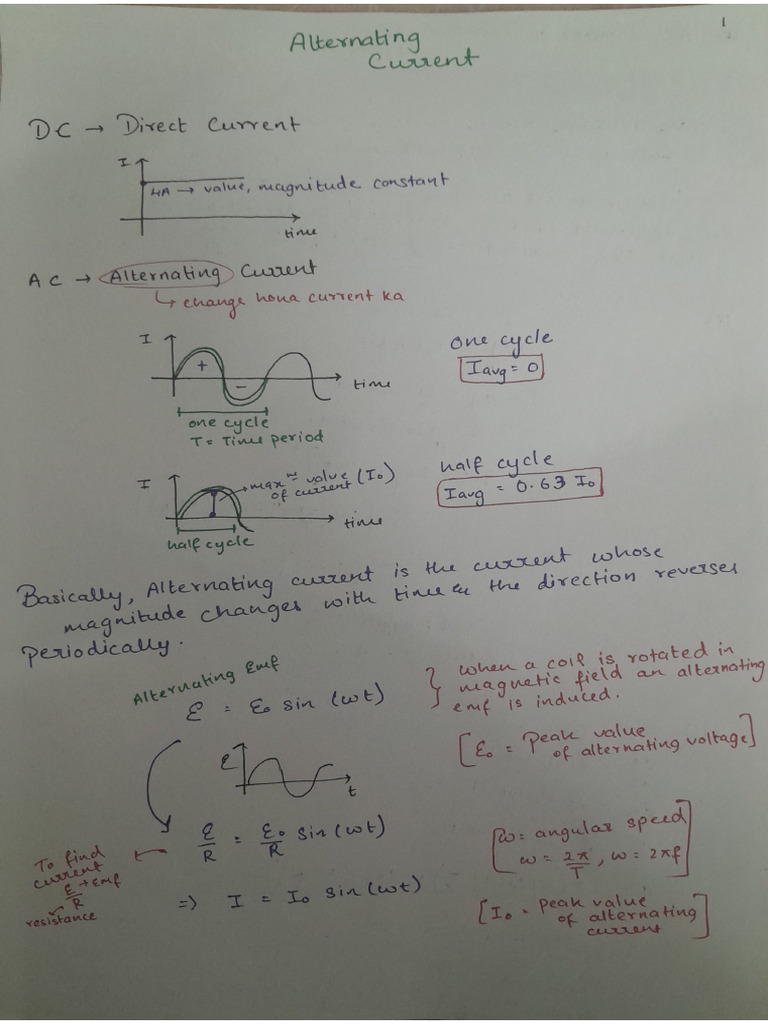 1
Alternating
Current
DC → Direct Current
I
4A → value, magnitude constant
time
AC → Alternating Current
↳ change hona current ka
I
+
−
time
one cycle
T = Time period
one cycle
Iavg = 0
I
maxm value (I₀)
of current
time
half cycle
half cycle
Iavg = 0.63 I₀
Basically, Alternating current is the current whose
magnitude changes with time & the direction reverses
periodically.
Alternating Emf
ℰ = ℰ₀ sin (ωt)
} when a coil is rotated in
magnetic field an alternating
emf is induced.
[ℰ₀ = Peak value
of alternating voltage]
ℰ
t
ℰ/R = ℰ₀/R sin (ωt)
To find
current
ℰ/R → Emf
resistance
[ω = angular speed
ω = 2π/T , ω = 2πf]
⇒ I = I₀ sin (ωt)
[I₀ = Peak value
of alternating
current]